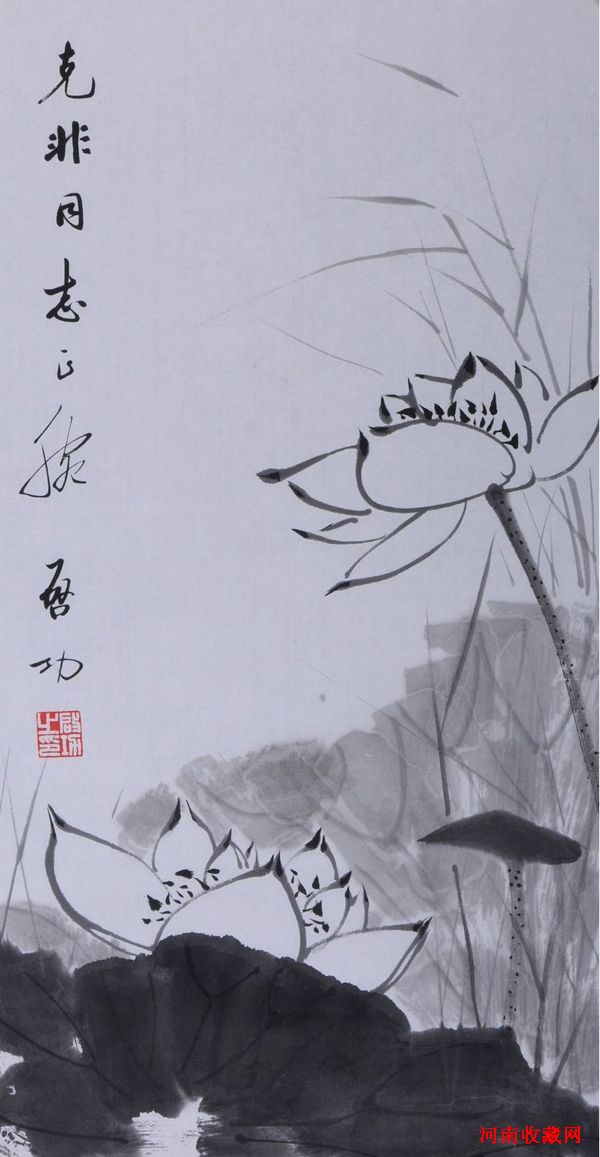 克非同志正腕
启功
啟功之印
河南收藏网